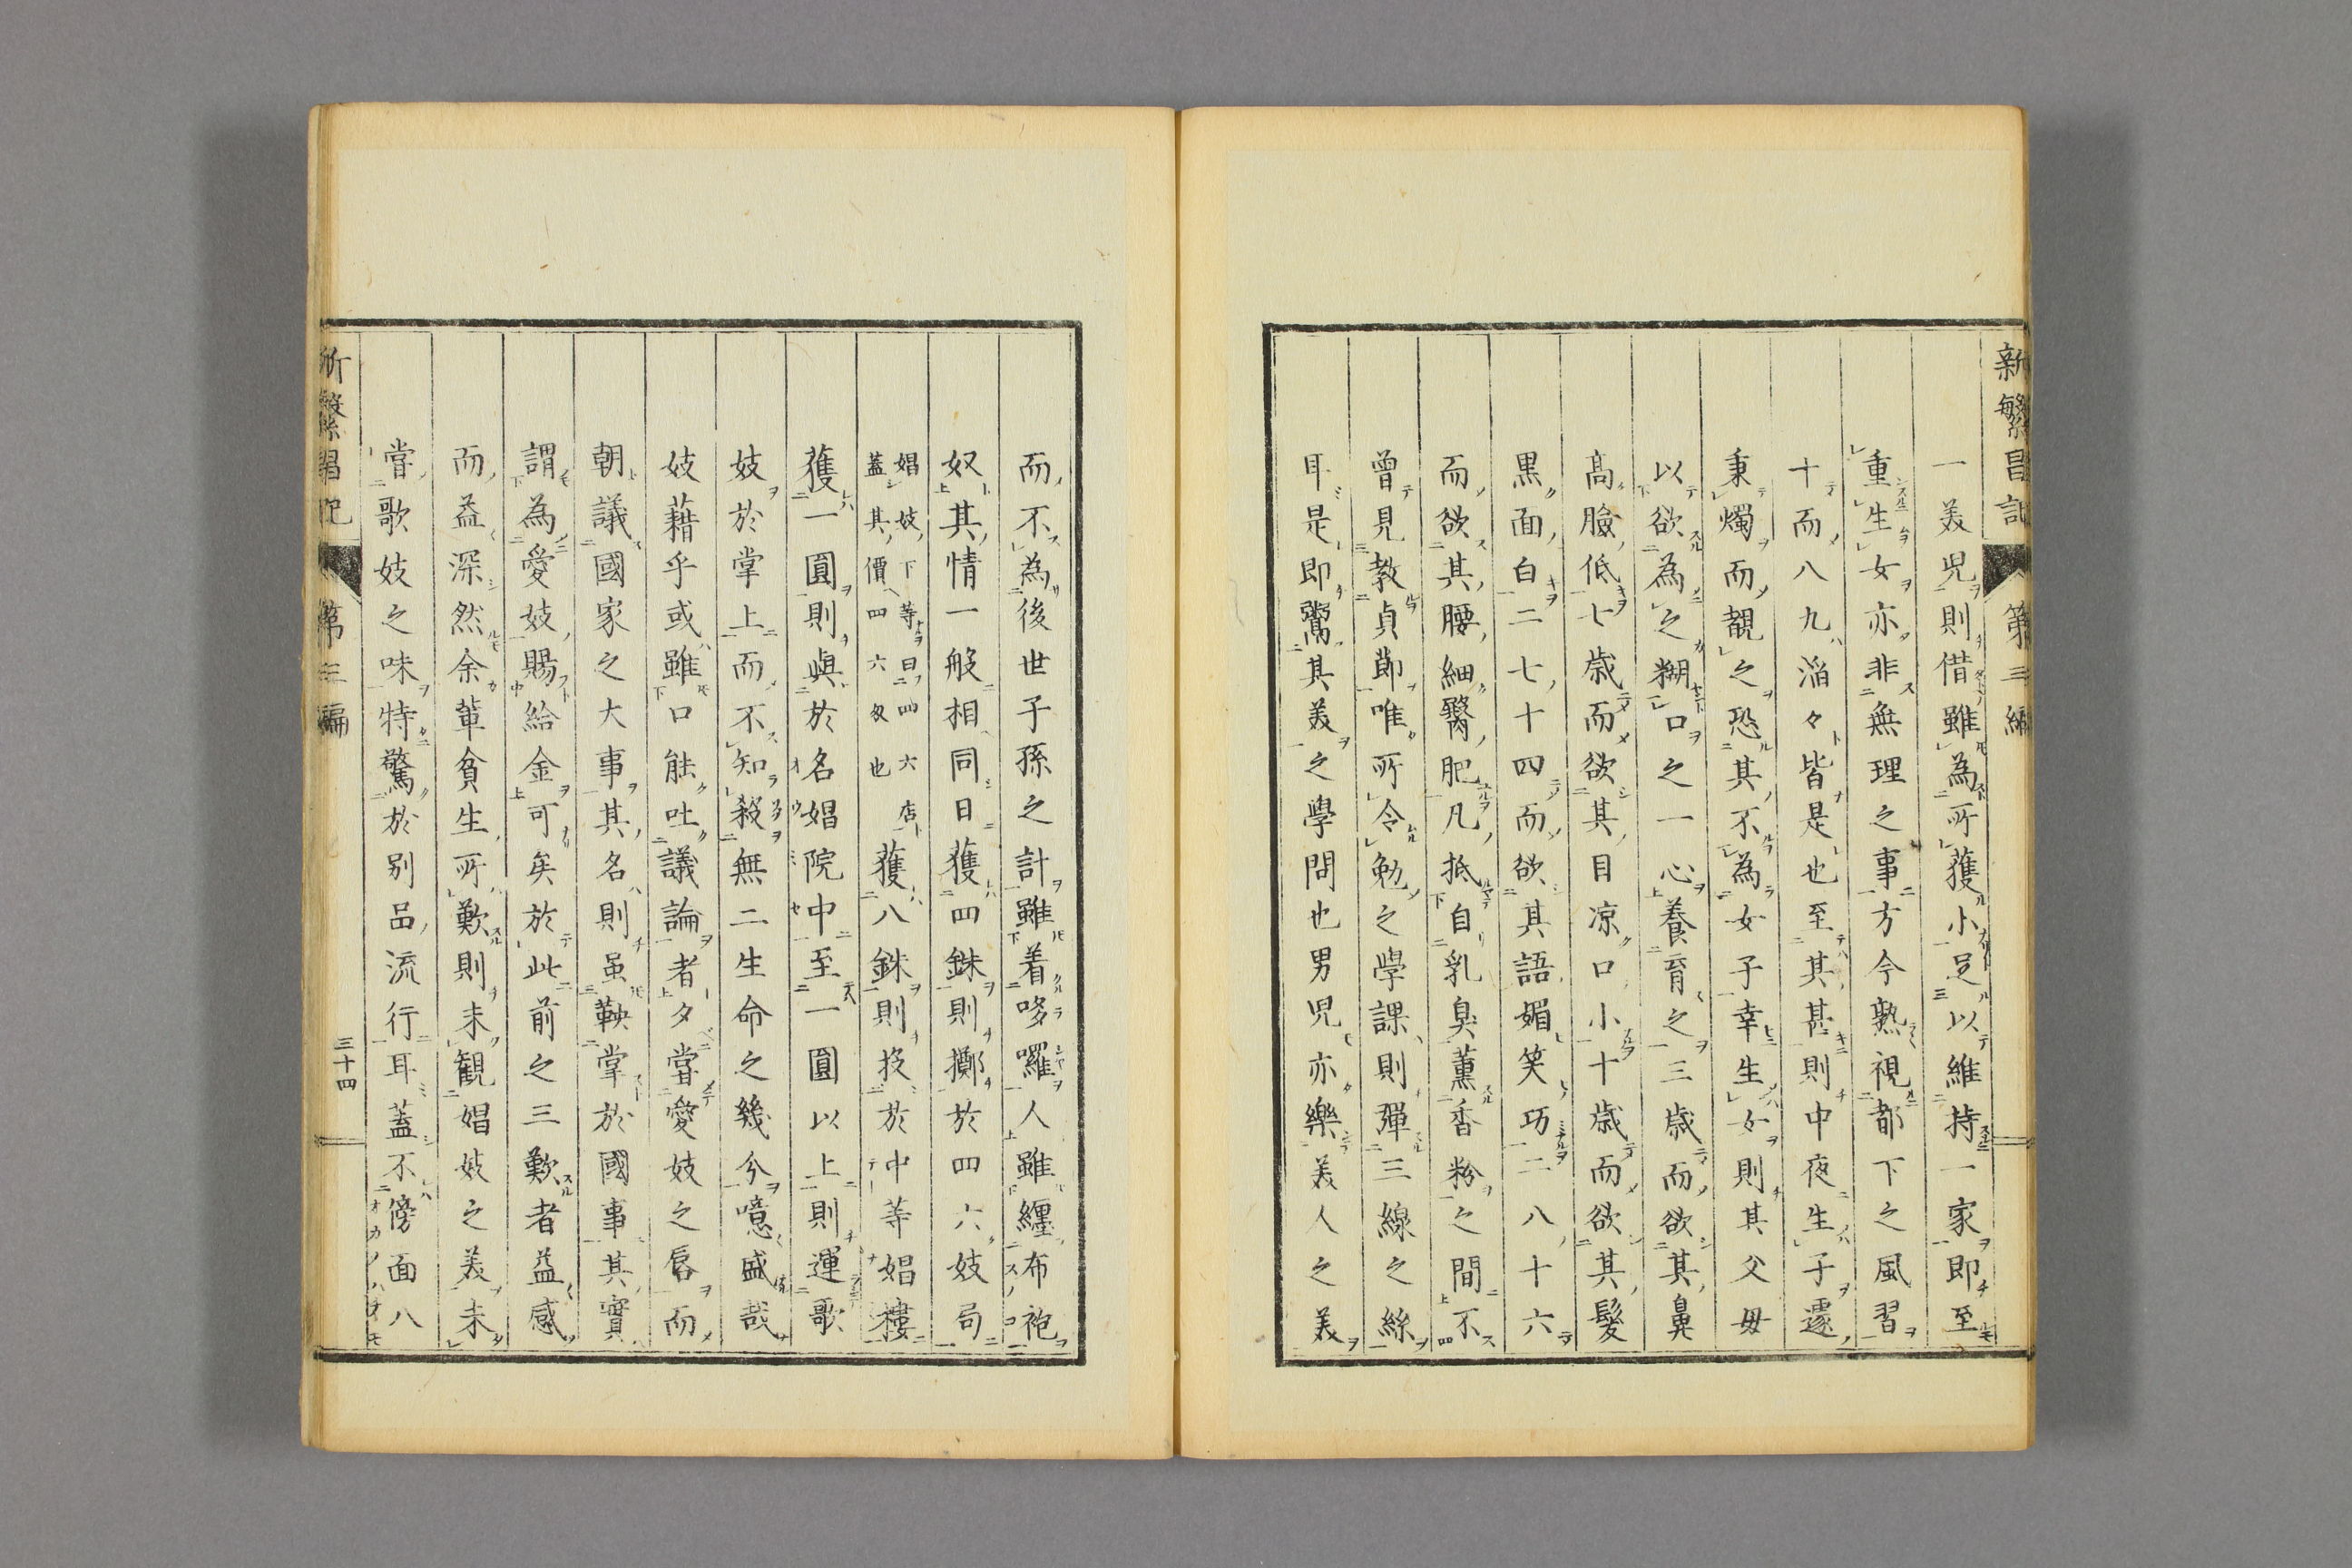 新繁昌記 第三編
一美児則借雖為所獲小足以維持一家即至
重生女亦非無理之事方今熟視都下之風習
十而八九滔々皆是也至其甚則中夜生子遽
秉燭而覩之恐其不為女子幸生女則其父母
以欲為之糊口之一心養育之三歳而欲其鼻
高臉低七歳而欲其目凉口小十歳而欲其髮
黒面白二七十四而欲其語媚笑巧二八十六
而欲其腰細臀肥凡抵自乳臭薫香粉之間不
曾見教貞節唯所令勉之學課則彈三線之絲
耳是即鬻其美之學問也男児亦樂美人之美
而不為後世子孫之計雖着哆囉人雖纏布袍
奴其情一般相同日獲四銖則擲於四六妓局
娼妓下等曰四六店
蓋其價四六匁也
獲八銖則投於中等娼樓
獲一圓則與於名娼院中至一圓以上則運歌
妓於掌上而不知殺無二生命之幾分噫盛哉
妓藉乎或雖口能吐議論者夕嘗愛妓之唇而
朝議國家之大事其名則虽鞅掌於國事其實
謂為愛妓賜給金可矣於此前之三歎者益感
而益深然余輩貧生所歎則未觀娼妓之美未
嘗歌妓之味特驚於別品流行耳蓋不傍面八
新繁昌記 第三編 三十四